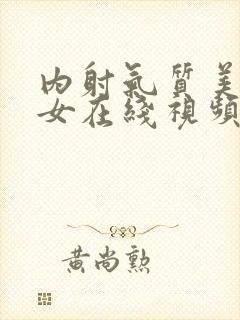 内射氣質美
女在綫視頻
黃尚勲